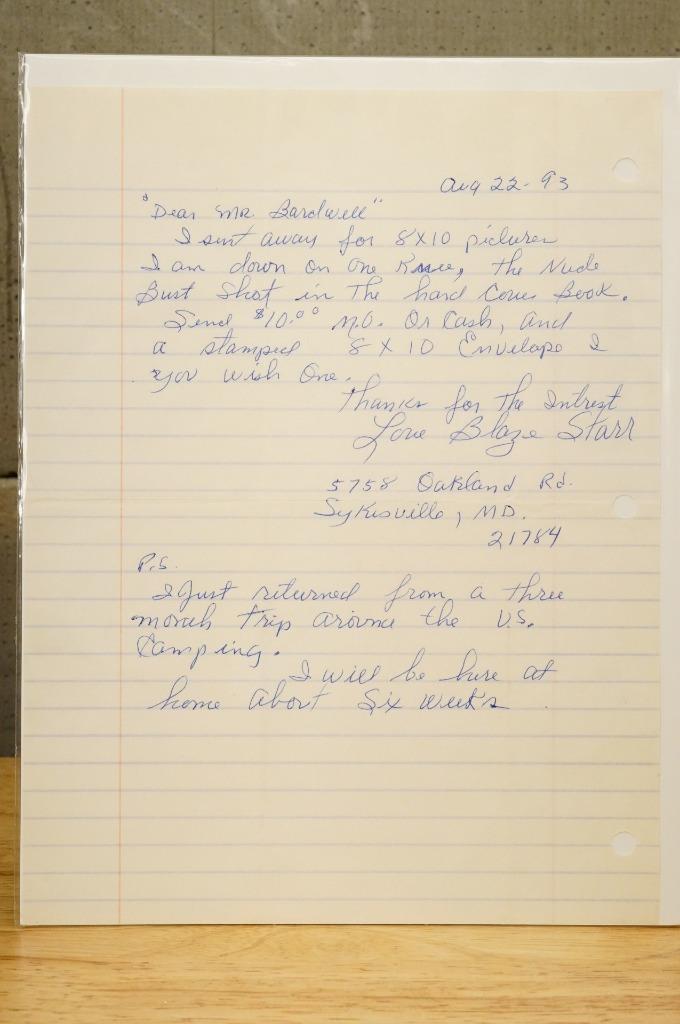 Aug 22-93
"Dear Mr. Bardwell"
I sent away for 8X10 pictures
I am down on one Knee, the Nude
Bust Shot in The hard Cover Book.
Send $10.00 M.O. Or Cash, and
a stamped 8 X 10 Envelope I
you wish One.
Thanks for The Intrest
Love Blaze Starr
5758 Oakland Rd.
Sykesville, MD.
21784
P.S.
I Just returned from a three
month Trip around the U.S.
Camping.
I will be here at
home about Six weeks.